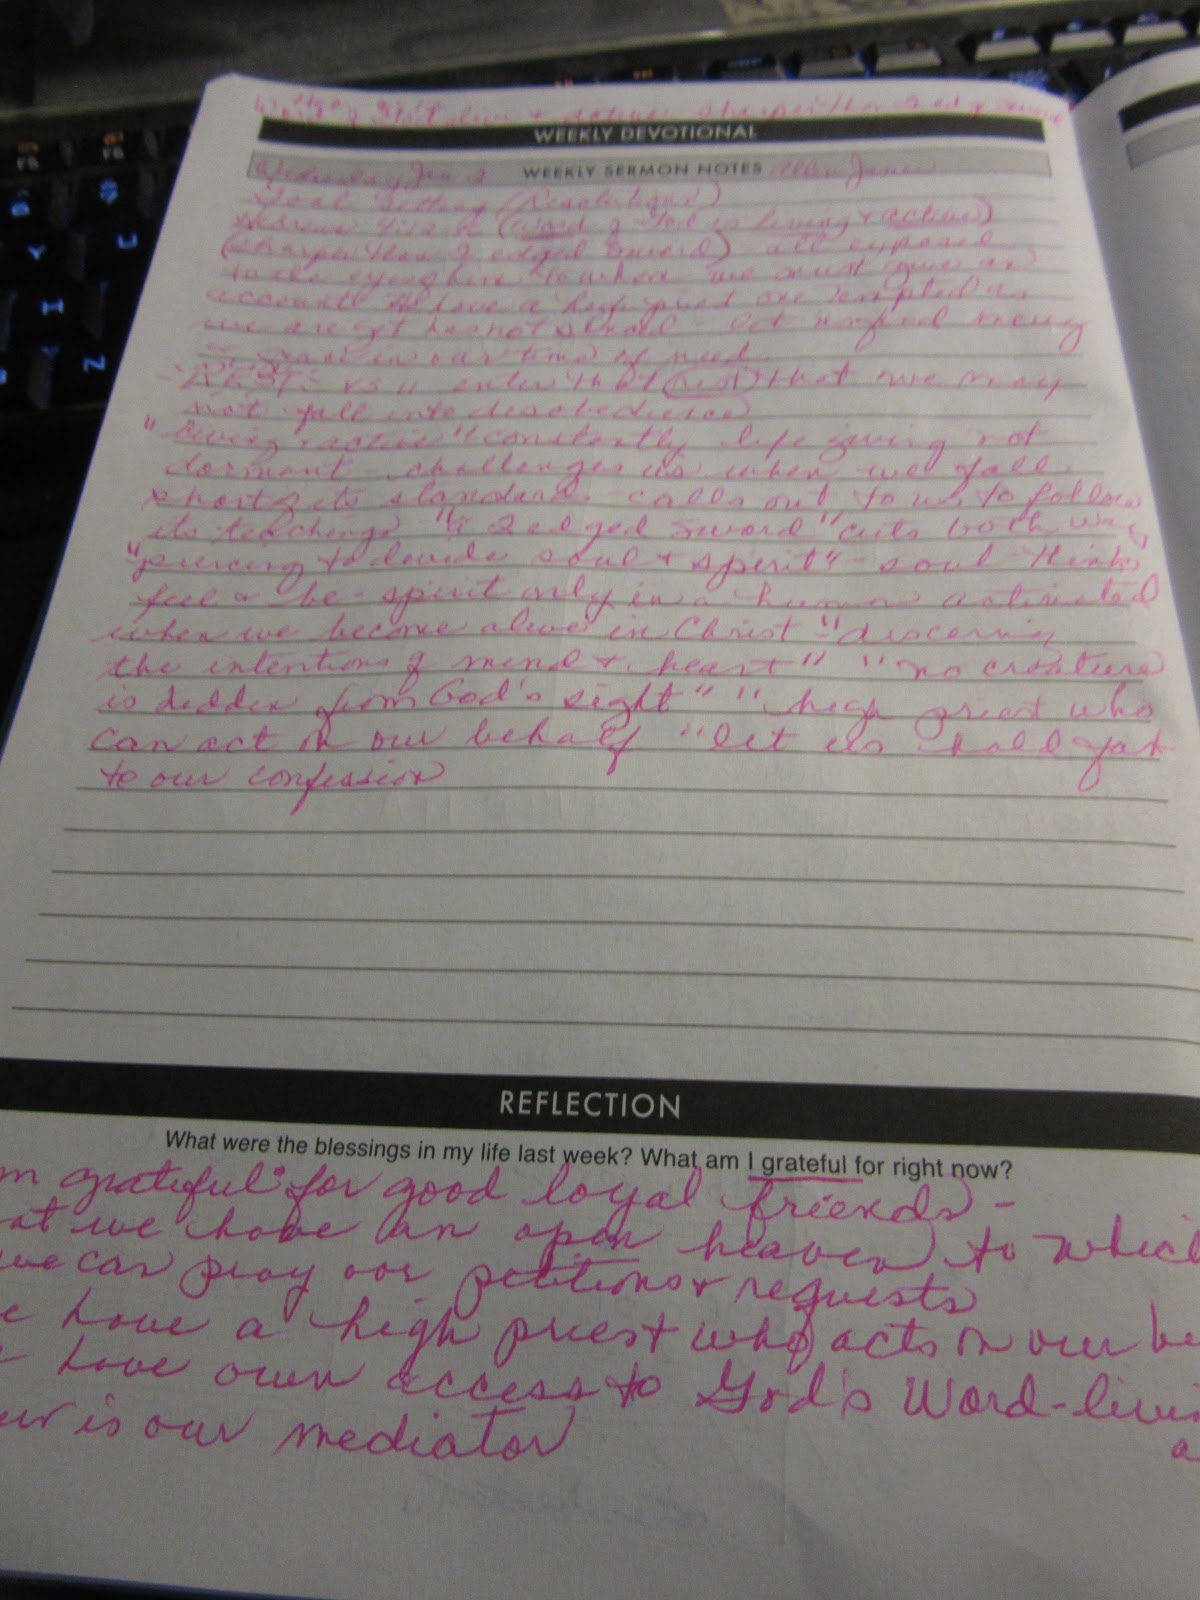 live & active sharper than 2 ed
WEEKLY DEVOTIONAL
WEEKLY SERMON NOTES
Goal Setting (Resolutions)
(Word of God is living & active)
(sharper than 2 edged sword) all exposed
to the eyes to whom we must give an
account We have a high priest one tempted as
we are yet has not sinned - let us find mercy
in our time of need
REST: vs 11 enter that (rest) that we may
not fall into disobedience
"living & active" constantly life giving not
dormant - challenges us when we fall
short of its standard - calls out to us to follow
its teachings "2 edged sword" cuts both ways
"piercing to devide soul & spirit" - soul thinks
feel & be - spirit only in a human activated
when we become alive in Christ - "discerning
the intentions of mind & heart" "no creature
is hidden from God's sight" "high priest who
can act on our behalf "let us hold fast
to our confession
REFLECTION
What were the blessings in my life last week? What am I grateful for right now?
grateful: for good loyal friends -
at we have an open heaven to which
we can pray our petitions & requests
have a high priest who acts on our be
have own access to God's Word - livi
a
is our mediator